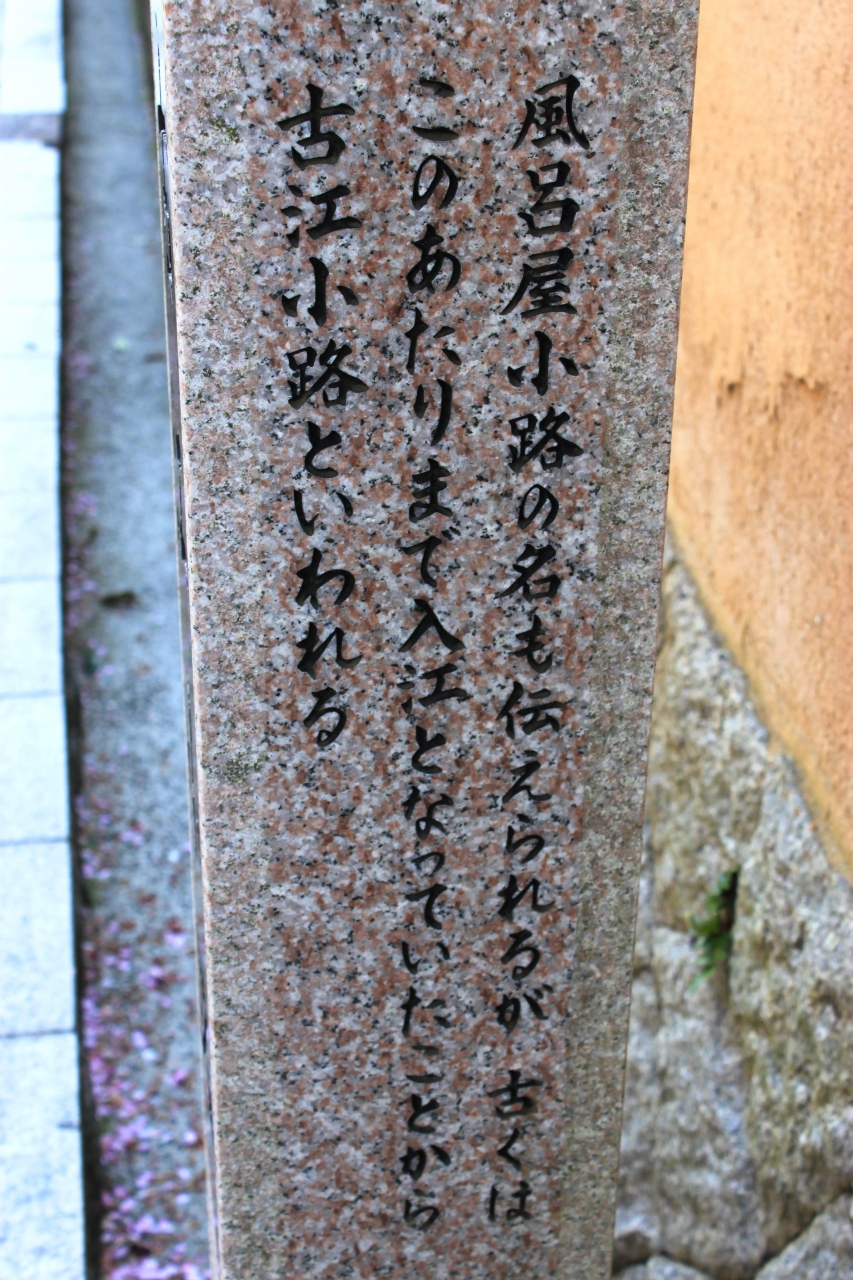 風呂屋小路の名も伝えられるが 古くは
このあたりまで入江となっていたことから
古江小路といわれる